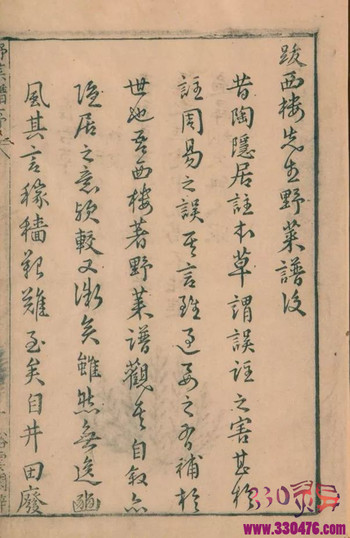 跋西樓先生野菜譜後
昔陶隱居註本草謂誤註之害甚於
註周易之誤其言雖過要之有補於
世也吾西樓著野菜譜觀其自敘亦
隱居之意欤較又微矣雖然無逸豳
風其言稼穡艱難至矣自井田廢
野菜譜
330
www.330476.com